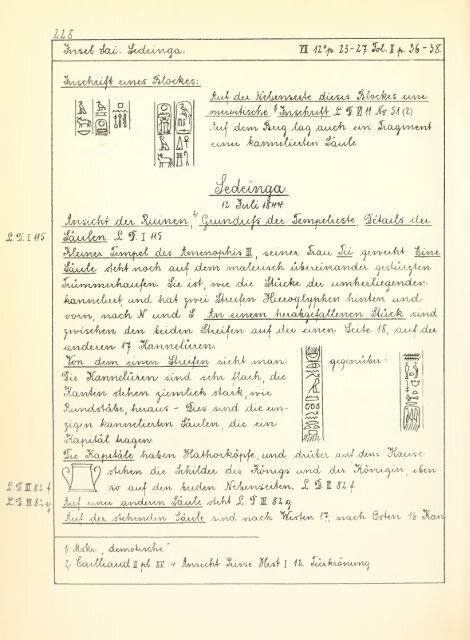 228
Insel Sai. Sedeinga. VI 12° p. 23-27 Fol. I p. 36-38.
Inschrift eines Blockes:
Auf der Nebenseite dieses Blockes eine
meroitische ¹⁾ Inschrift L. D. VI 11 No 51 (2)
Auf dem Berg lag auch ein Fragment
einer kannelierten Säule
Sedeinga.
12 Juli 1844
Ansicht der Ruinen, ²⁾ Grundriß der Tempelreste, Details der
L. D. I 115
Säulen. L. D. I 115
Kleiner Tempel des Amenophis III, seiner Frau Tii geweiht Eine
Säule steht noch auf dem malerisch übereinander gestürzten
Trümmerhaufen. Sie ist, wie die Stücke der umherliegenden
kanneliert und hat zwei Streifen Hieroglyphen hinten und
vorn, nach N und S An einem herabgefallenen Stück sind
zwischen den beiden Streifen auf der einen Seite 18, auf der
anderen 17 Kannelüren.
Von dem einen Streifen sieht man: gegenüber:
Die Kannelüren sind sehr flach, die
Kanten stehen ziemlich stark, wie
Rundstäbe, heraus – Dies sind die ein-
zigen kannelierten Säulen, die ein
Kapitäl tragen
Die Kapitäle haben Hathorköpfe, und drüber auf dem Hause
stehen die Schilder des Königs und der Königin, eben-
L. D. III 82 f
so auf den beiden Nebenseiten. L. D. III 82 f
L. D. III 82 g
Auf einer anderen Säule steht L. D III 82 g
Auf der stehenden Säule sind nach Westen 17, nach Osten 16 Kan
1) Mskr. „demotische"
2) Cailliaud II pl. XV + Ansicht Prisse Hist I 12.